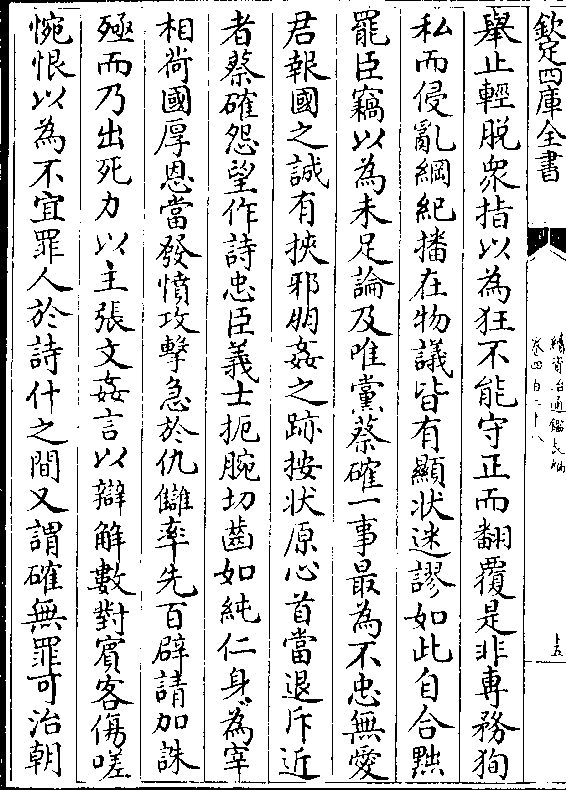 欽定四庫全書
續資治通鑑長編
卷四百二十八
十五
舉止輕脫衆指以為狂不能守正而翻覆是非專務狥
私而侵亂綱紀播在物議皆有顯狀迷謬如此自合黜
罷臣竊以為未足論及唯黨蔡確一事最為不忠無愛
君報國之誠有挾邪朋姦之跡按狀原心首當退斥近
者蔡確怨望作詩忠臣義士扼腕切齒如純仁身為宰
相荷國厚恩當發憤攻擊急於仇讎率先百辟請加誅
殛而乃出死力以主張文姦言以辯解數對賓客傷嗟
惋恨以為不宜罪人於詩什之間又謂確無罪可治朝